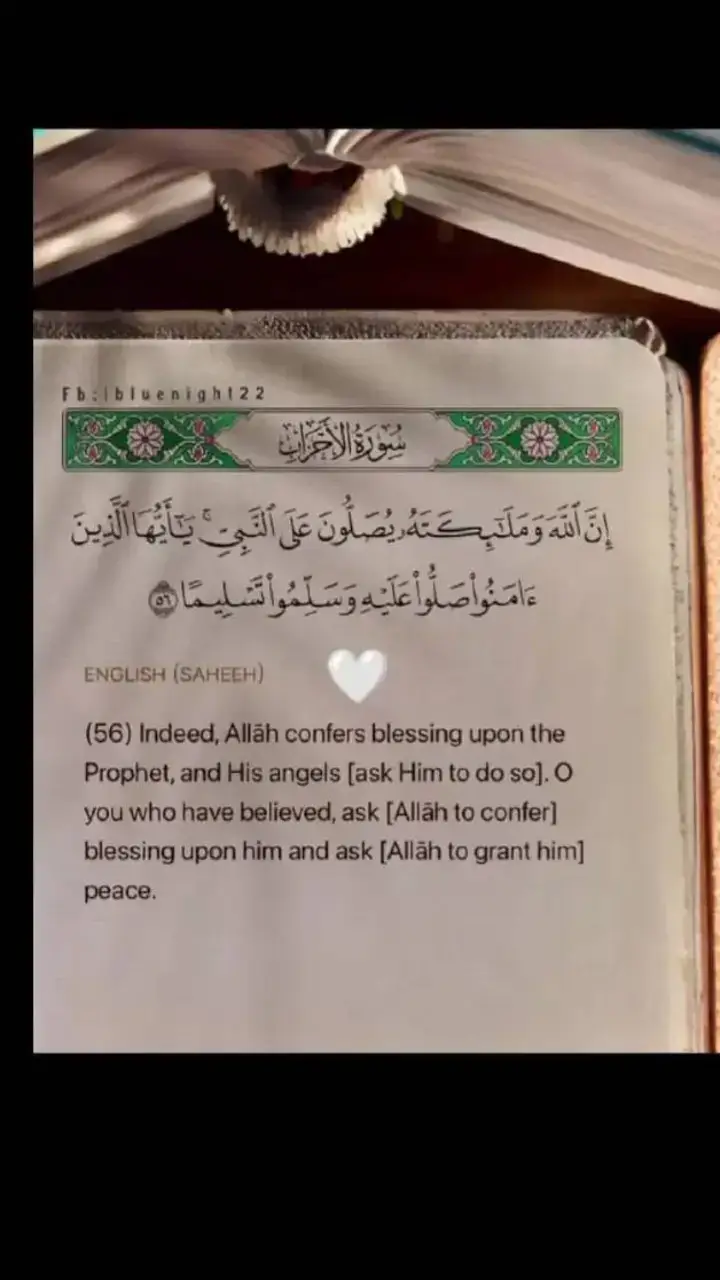 Fb:lbluenight22
سُورَةُ الْأَحْزَابِ
إِنَّ ٱللَّهَ وَمَلَـٰٓئِكَتَهُۥ يُصَلُّونَ عَلَى ٱلنَّبِىِّ ۚ يَـٰٓأَيُّهَا ٱلَّذِينَ
ءَامَنُوا۟ صَلُّوا۟ عَلَيْهِ وَسَلِّمُوا۟ تَسْلِيمًا ٥٦
ENGLISH (SAHEEH)
(56) Indeed, Allāh confers blessing upon the
Prophet, and His angels [ask Him to do so]. O
you who have believed, ask [Allāh to confer]
blessing upon him and ask [Allāh to grant him]
peace.